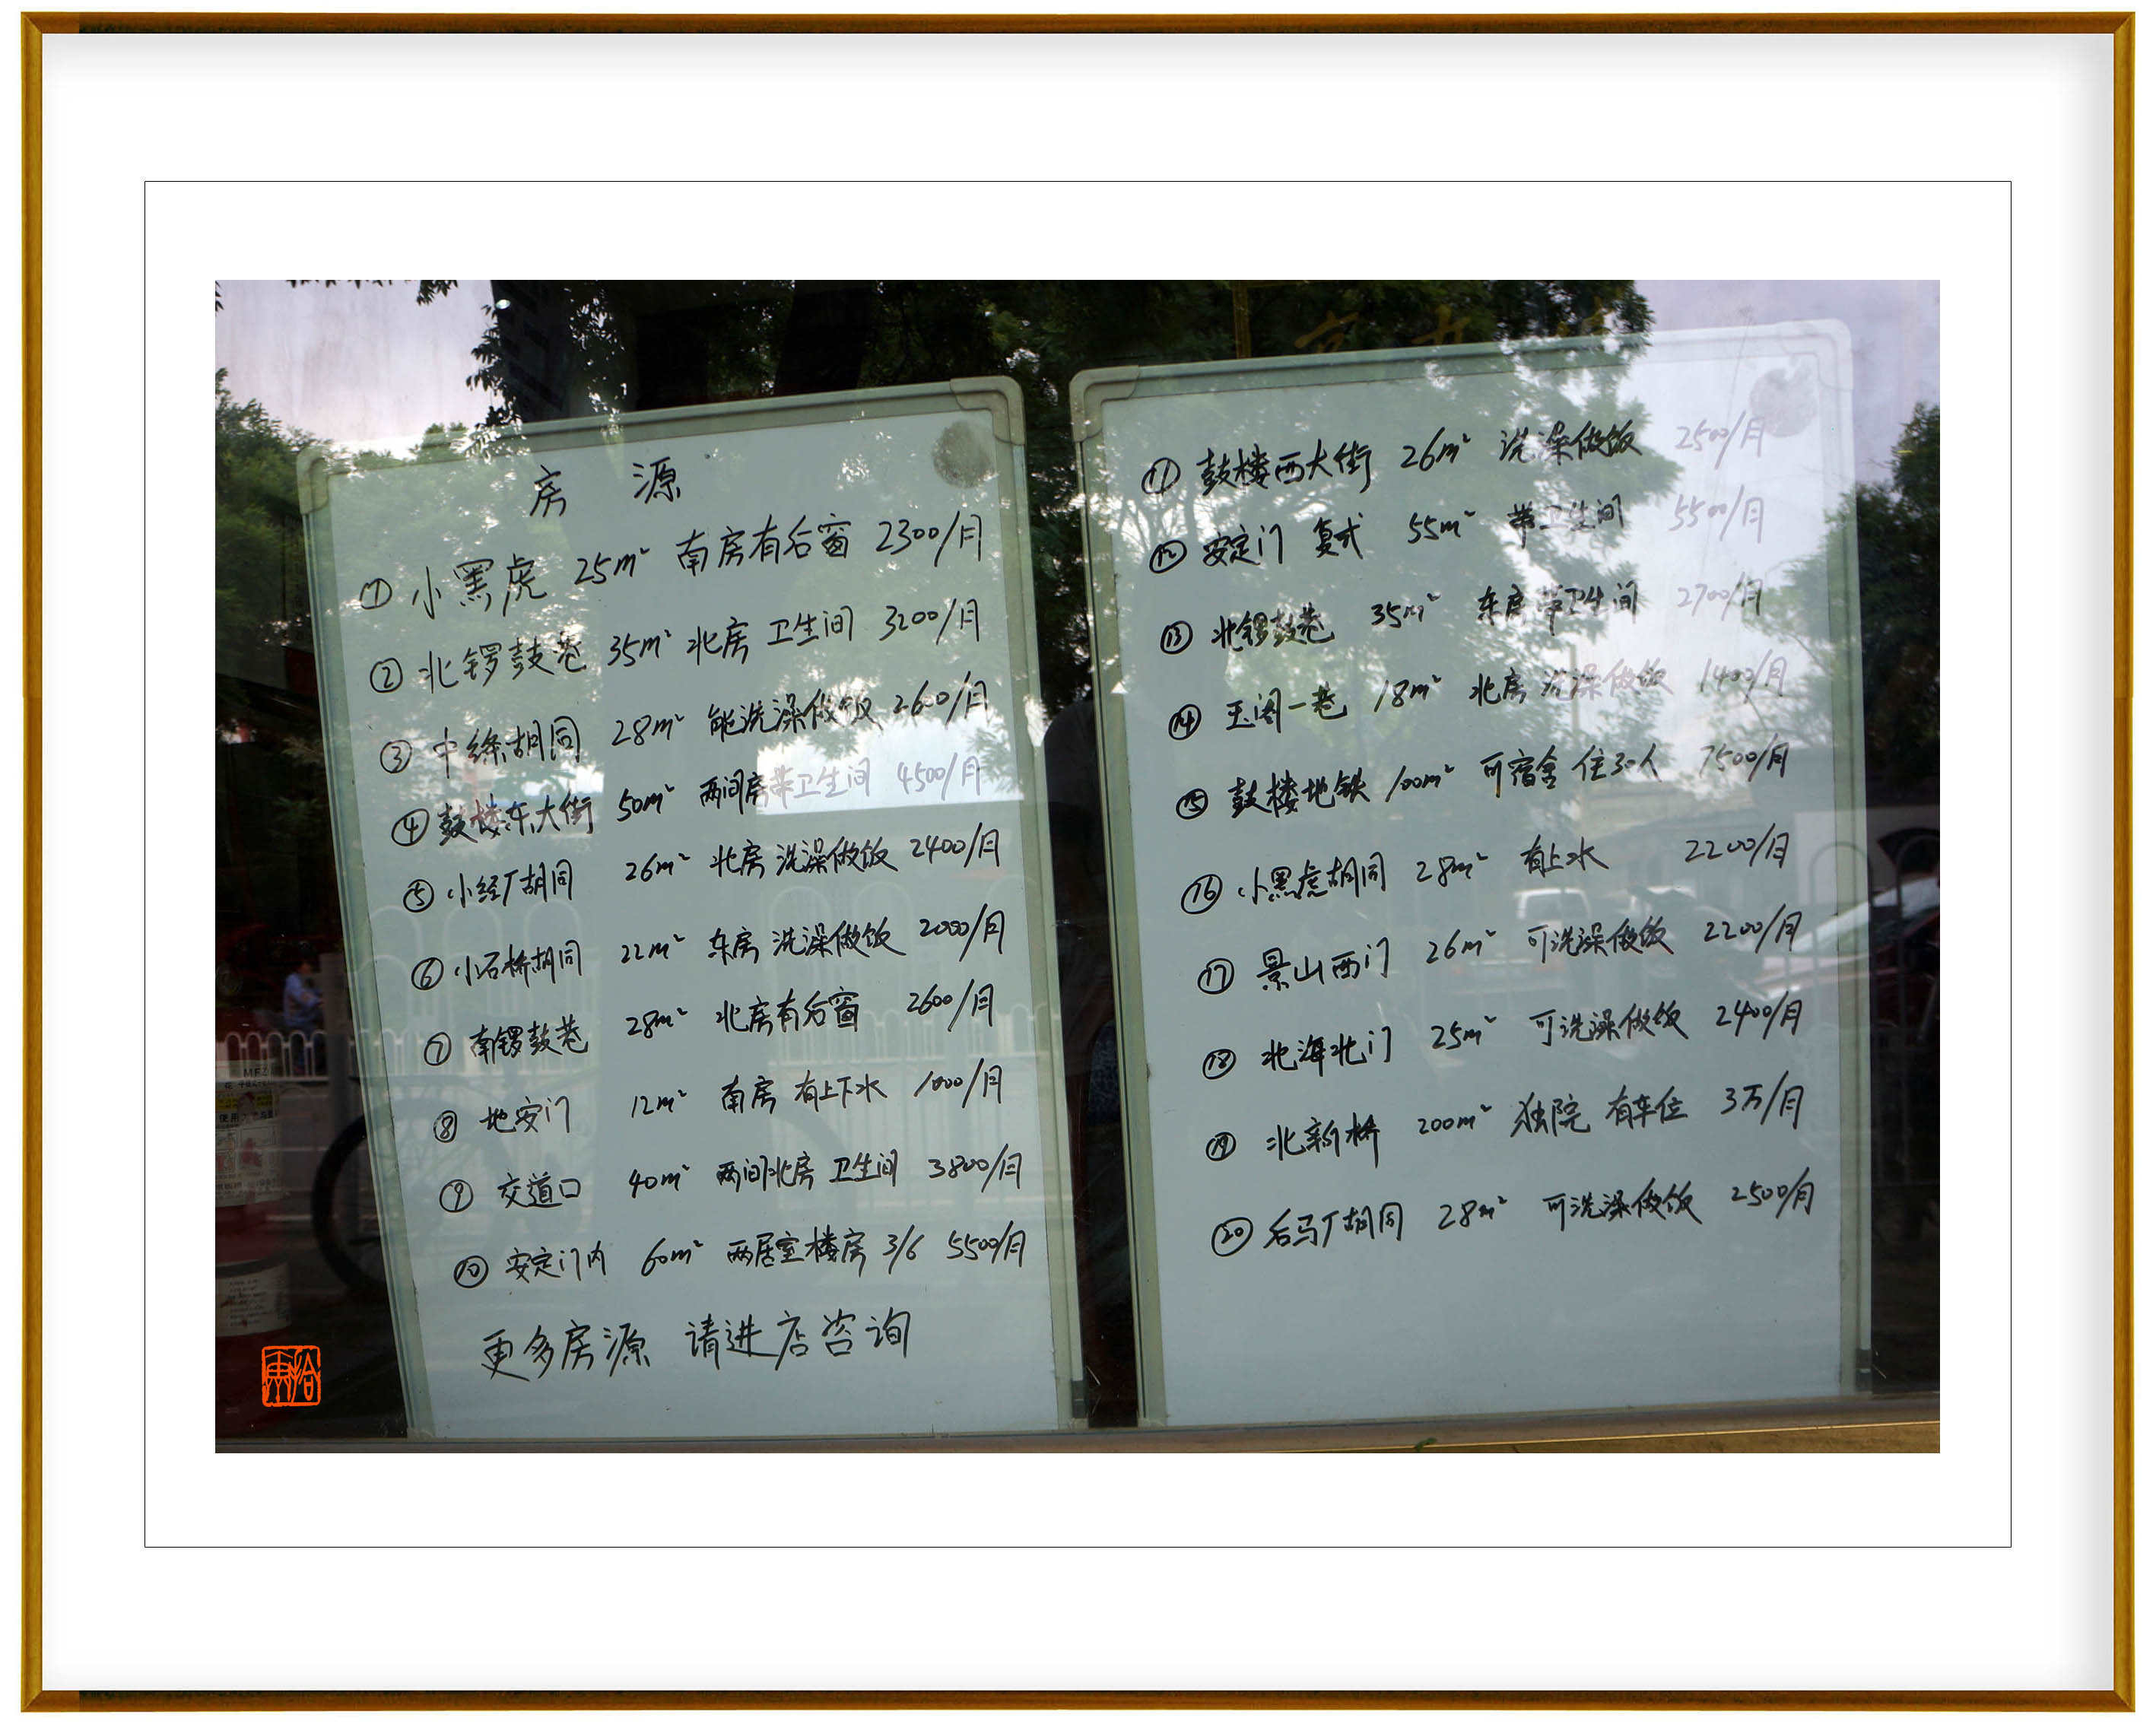 房 源
① 小黑虎 25m² 南房有后窗 2300/月
② 北锣鼓巷 35m² 北房 卫生间 3200/月
③ 中绦胡同 28m² 能洗澡做饭 2600/月
④ 鼓楼东大街 50m² 两间房带卫生间 4500/月
⑤ 小经厂胡同 26m² 北房 洗澡做饭 2400/月
⑥ 小石桥胡同 22m² 东房 洗澡做饭 2000/月
⑦ 南锣鼓巷 28m² 北房有后窗 2600/月
⑧ 地安门 12m² 南房 有上下水 1000/月
⑨ 交道口 40m² 两间北房 卫生间 3800/月
⑩ 安定门内 60m² 两居室楼房 3/6 5500/月
更多房源 请进店咨询
⑪ 鼓楼西大街 26m² 洗澡做饭 2500/月
⑫ 安定门 复式 55m² 带卫生间 5500/月
⑬ 北锣鼓巷 35m² 东房 带卫生间 2700/月
⑭ 玉阁一巷 18m² 北房 洗澡做饭 1400/月
⑮ 鼓楼地铁 100m² 可宿舍 住30人 7500/月
⑯ 小黑虎胡同 28m² 有上水 2200/月
⑰ 景山西门 26m² 可洗澡做饭 2200/月
⑱ 北海北门 25m² 可洗澡做饭 2400/月
⑲ 北新桥 200m² 独院 有车位 3万/月
⑳ 后马厂胡同 28m² 可洗澡做饭 2500/月